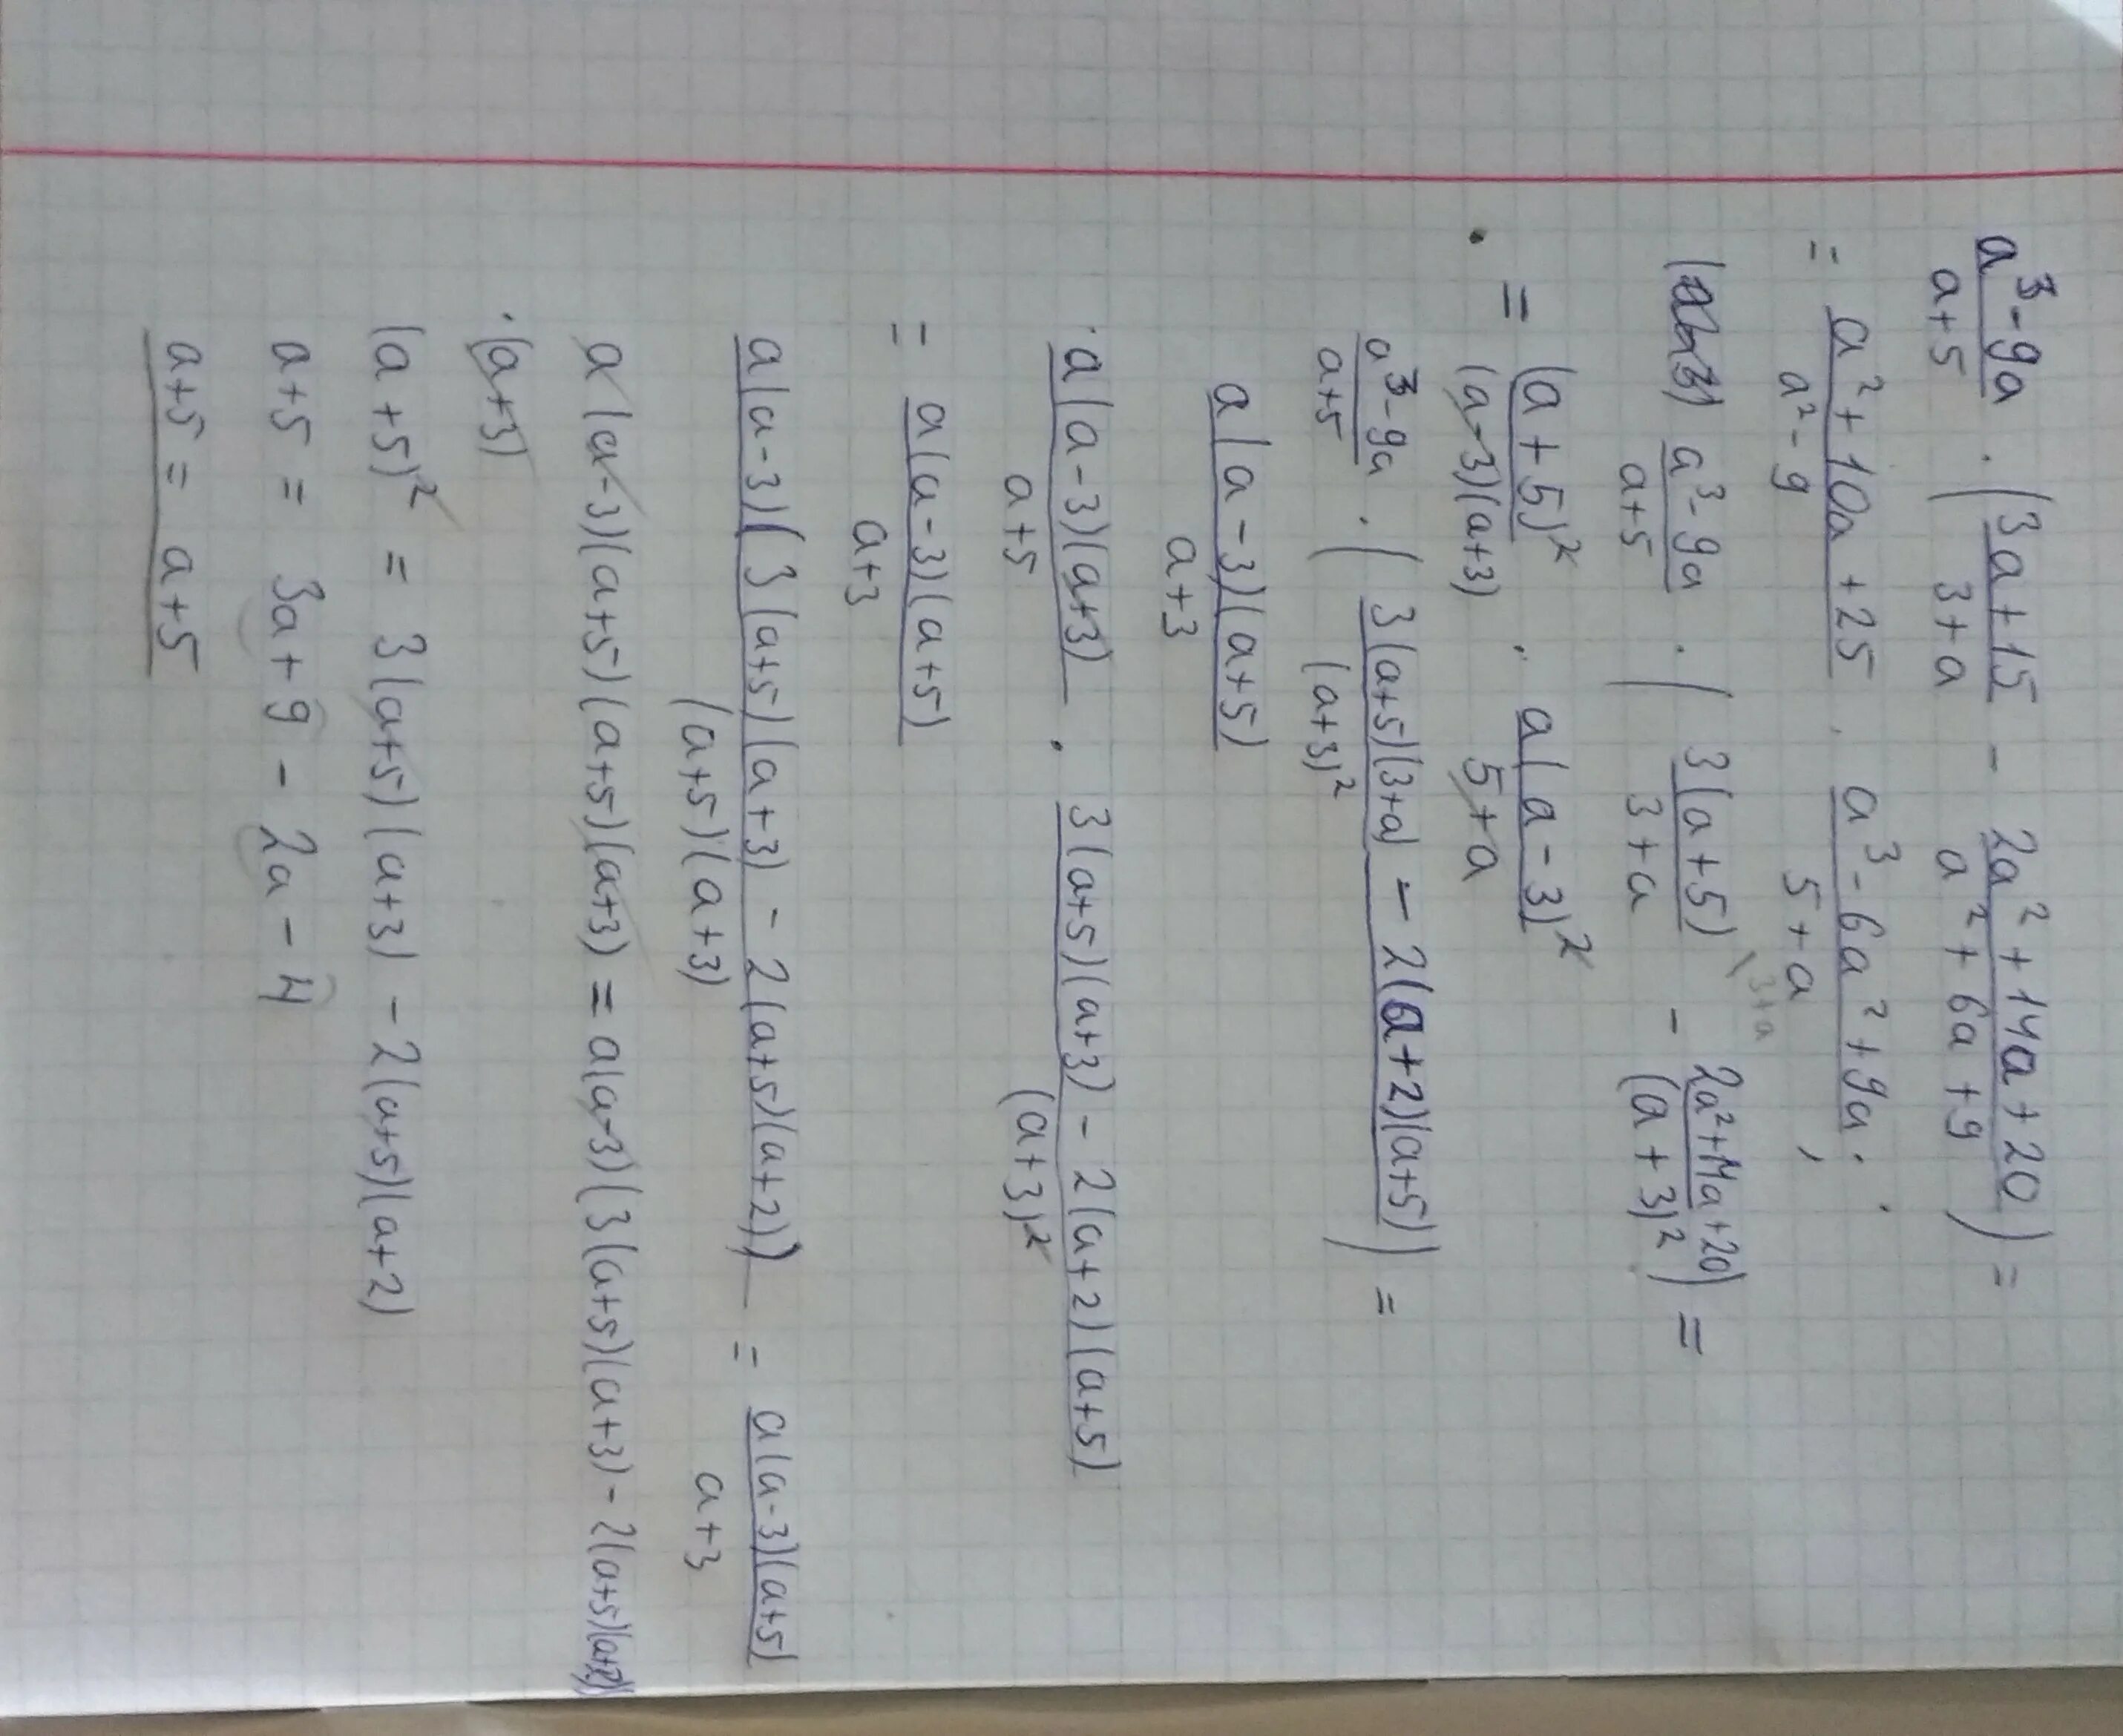 a³-9a / a+5 · ( 3a+15 / 3+a - 2a²+14a+20 / a²+6a+9 ) =
= a²+10a+25 / a²-9 · a³-6a²+9a / 5+a ;
a³-9a / a+5 · ( 3(a+5) / 3+a \3+a - 2a²+14a+20 / (a+3)² ) =
= (a+5)² / (a-3)(a+3) · a(a-3)² / 5+a
a³-9a / a+5 · ( 3(a+5)(3+a) - 2(a+2)(a+5) / (a+3)² ) =
a(a-3)(a+5) / a+3
· a(a-3)(a+3) / a+5 · 3(a+5)(a+3) - 2(a+2)(a+5) / (a+3)²
= a(a-3)(a+5) / a+3
a(a-3)(3(a+5)(a+3) - 2(a+5)(a+2)) / (a+5)(a+3) = a(a-3)(a+5) / a+3
a(a-3)(a+5)(a+5)(a+3) = a(a-3)(3(a+5)(a+3) - 2(a+5)(a+2))
·(a+3)
(a+5)² = 3(a+5)(a+3) - 2(a+5)(a+2)
a+5 = 3a+9 - 2a-4
a+5 = a+5